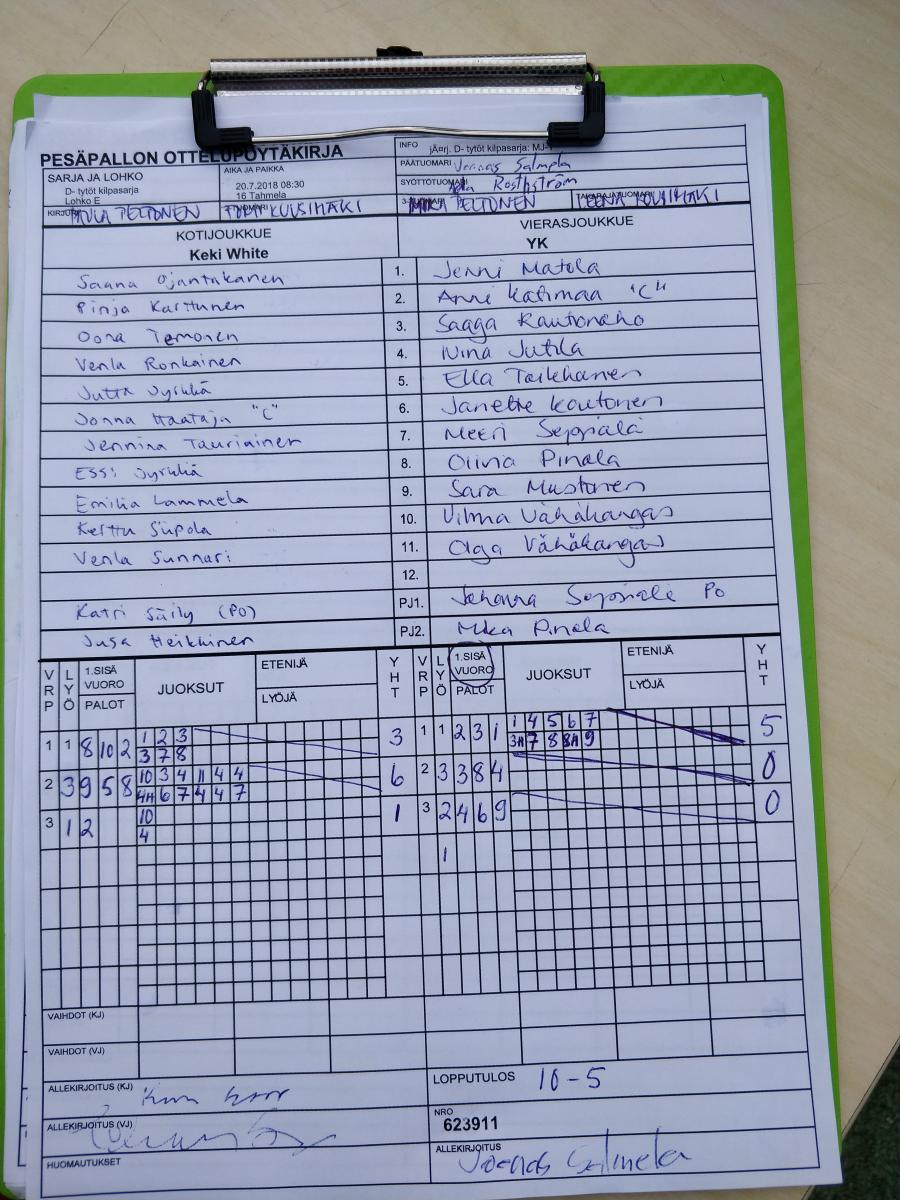 PESÄPALLON OTTELUPÖYTÄKIRJA
SARJA JA LOHKO
D- tytöt kilpasarja
Lohko E
AIKA JA PAIKKA
20.7.2018 08:30
16 Tahmela
INFO
jÃ¤rj. D- tytöt kilpasarja: MJ-
PÄÄTUOMARI Joonas Salmela
SYÖTTÖTUOMARI
PELTONEN
KUUSIMÄKI
MIKA PELTONEN
LEENA KUUSIMÄKI
KOTIJOUKKUE
Keki White
VIERASJOUKKUE
YK
Saana Ojantakanen 1. Jenni Matola
Pinja Karttunen 2. Anni Katimaa "C"
Oona Temonen 3. Saaga Rautionaho
Venla Ronkainen 4. Nina Jutila
Jutta Jyrkkä 5. Ella Toikkanen
Jonna Haataja "C" 6. Janette Koutonen
Jennina Tauriainen 7. Meeri Seppälä
Essi Jyrkkä 8. Olivia Pinola
Emilia Lammela 9. Sara Mustonen
Kerttu Siipola 10. Vilma Vähäkangas
Venla Sunnari 11. Olga Vähäkangas
12.
Katri Säily (PO) PJ1. Johanna Seppälä PO
Jusa Heikkinen PJ2. Mika Pinola
VRP LYÖ 1.SISÄ VUORO PALOT JUOKSUT ETENIJÄ LYÖJÄ YHT VRP LYÖ 1.SISÄ VUORO PALOT JUOKSUT ETENIJÄ LYÖJÄ YHT
1 1 8 10 2 1 2 3 3 1 1 2 3 1 1 4 5 6 7 5
3 7 8 3H 7 8 8H 9
2 3 9 5 8 10 3 4 11 4 4 6 2 3 3 8 4 0
4H 6 7 4 4 7
3 1 2 10 1 3 2 4 6 9 0
4
1
VAIHDOT (KJ)
VAIHDOT (VJ)
ALLEKIRJOITUS (KJ)
LOPPUTULOS 10-5
ALLEKIRJOITUS (VJ)
NRO
623911
HUOMAUTUKSET
ALLEKIRJOITUS
Joonas Salmela